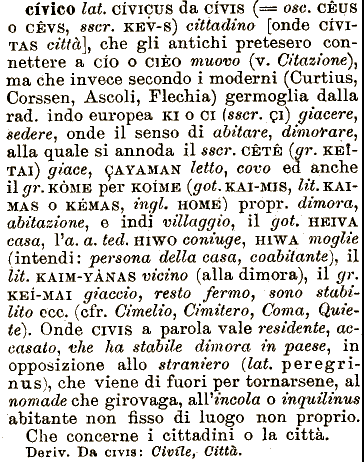 cívico lat. CÍVICUS da CÍVIS (= osc. CĒUS
o CĒVS, sscr. KEV-S) cittadino [onde CÍVI-
TAS città], che gli antichi pretesero con-
nettere a CÍO o CIĒO muovo (v. Citazione),
ma che invece secondo i moderni (Curtius,
Corssen, Ascoli, Flechia) germoglia dalla
rad. indo europea KI o CI (sscr. ÇI) giacere,
sedere, onde il senso di abitare, dimorare,
alla quale si annoda il sscr. CÊTÊ (gr. KEÎ-
TAI) giace, ÇAYAMAN letto, covo ed anche
il gr. KÒME per KOIME (got. KAI-MIS, lit. KAI-
MAS o KÉMAS, ingl. HOME) propr. dimora,
abitazione, e indi villaggio, il got. HEIVA
casa, l'a. a. ted. HIWO coniuge, HIWA moglie
(intendi: persona della casa, coabitante), il
lit. KAIM-YÀNAS vicino (alla dimora), il gr.
KEÍ-MAI giaccio, resto fermo, sono stabi-
lito ecc. (cfr. Cimelio, Cimitero, Coma, Quie-
te). Onde CIVIS a parola vale residente, ac-
casato, che ha stabile dimora in paese, in
opposizione allo straniero (lat. peregri-
nus), che viene di fuori per tornarsene, al
nomade che girovaga, all'incola o inquilinus
abitante non fisso di luogo non proprio.
Che concerne i cittadini o la città.
Deriv. Da CIVIS: Civile, Città.